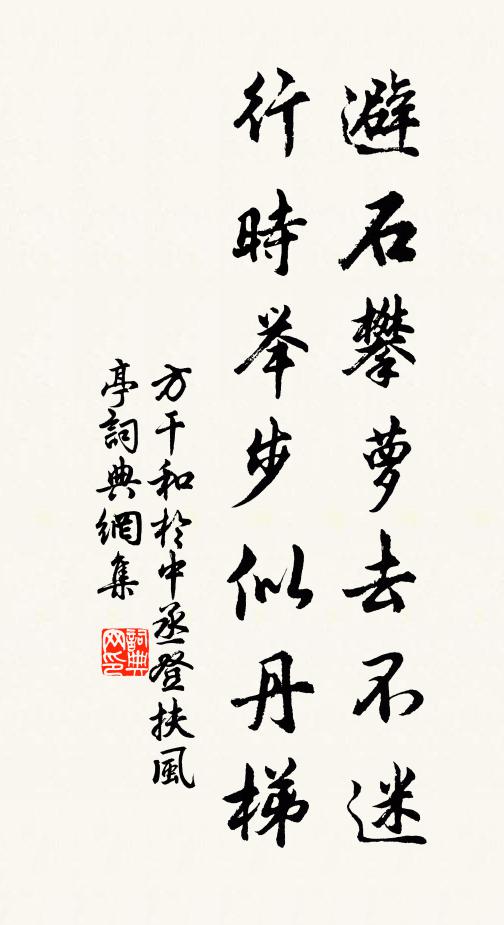 避石攀萝去不迷
行時举步似丹梯
方干和於中丞登扶風
亭詞典網集
詞典
网印